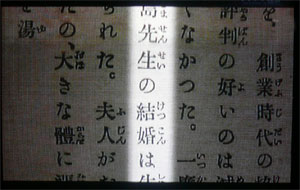 を。
創業時代の
評判の好いのは
くなかつた。一
先生の結婚は
られた。夫人が
たの、大きな體に
を湯